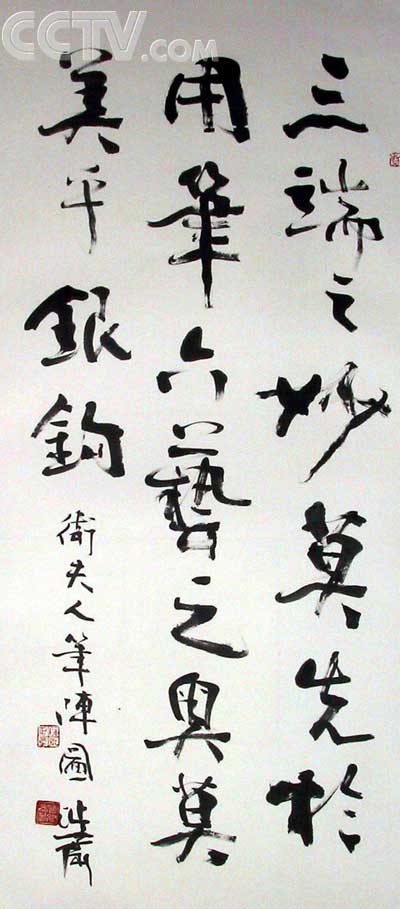 CCTV.com
三端之妙莫先於
用筆六藝之奧莫
美乎銀鉤
衛夫人筆陣圖